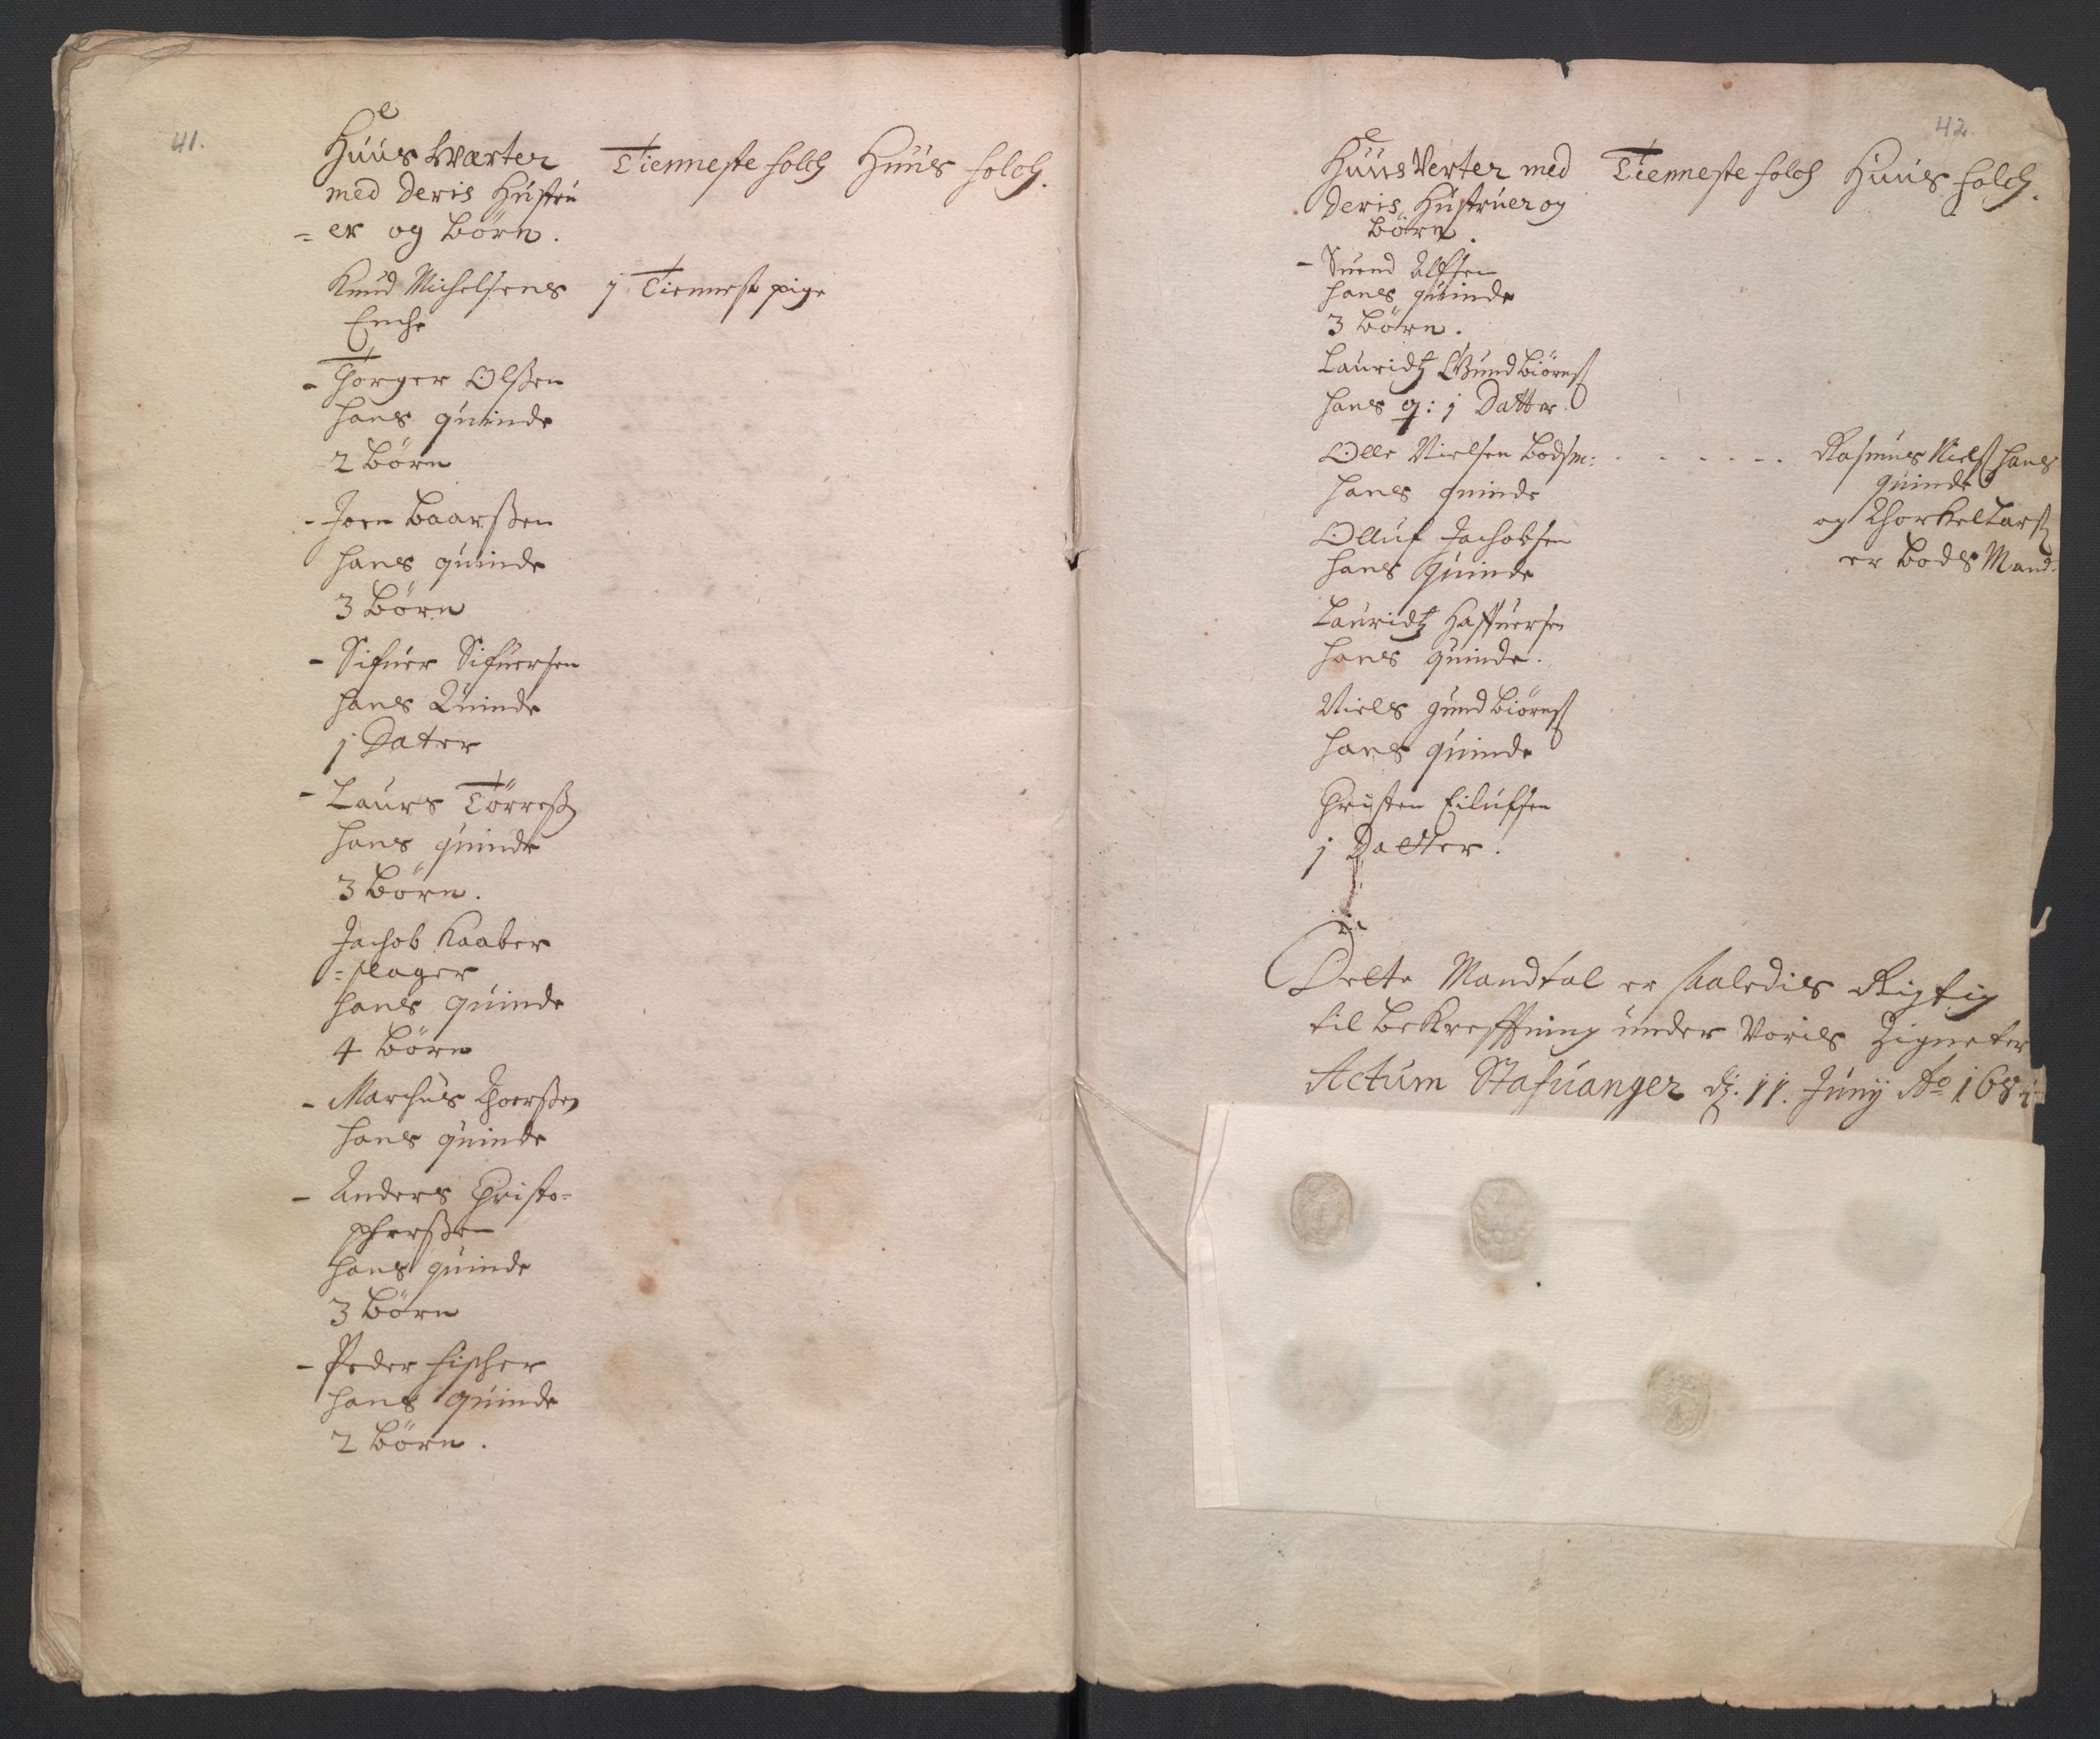 41.
Huus Wærter
med deris Hustru
= er og Børn.
Tienneste folch
Huus folch.
Knud Michelsens
Enche
1 Tiennest pige
- Thorger Olßen
hans quinde
2 Børn
- Joen Baarßen
hans quinde
3 Børn
- Sifuer Sifuersen
hans Quinde
1 Dater
- Laurs Törreß
hans quinde
3 Børn.
Jachob Kaaber
= slager
hans quinde
4 Børn
- Marchus Thoerßen
hans quinde
- Anders Christo=
pherßen
hans quinde
3 Børn
- Peder fischer
hans quinde
2 Børn.
42.
Huus Verter med
deris Hustruer og
Børn.
Tienneste folch
Huus folch.
- Suend Alfsen
hans quinde
3 Børn.
Lauridtz Gundbiörns
hans q: 1 Datter.
Olle Nielsen Bodsm: - - - - -
Rasmus Niels hans
quinde
hans quinde
og Thorkel Lars
Olluf Jachobsen
er Bods Mand.
hans Quinde
Lauridtz Haffuersen
hans quinde.
Niels gundbiörns
hans quinde
Christen Eilufsen
1 Datter.
Dette Mandtal er saaledis Rigtig
til bekrefftning under Voris Zigneter
Actum Stafuanger d. 11. Junij Ao 168